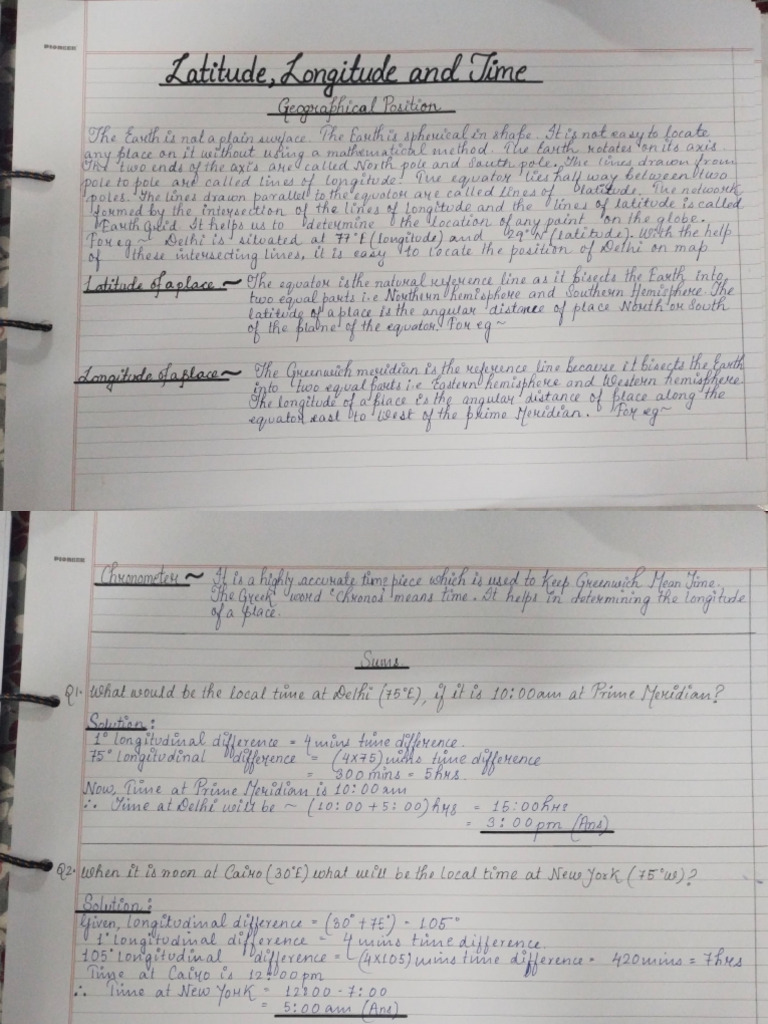 PIONEER
Latitude, Longitude and Time
Geographical Position
The Earth is not a plain surface. The Earth is spherical in shape. It is not easy to locate
any place on it without using a mathematical method. The Earth rotates on its axis.
The two ends of the axis are called North pole and South pole. The lines drawn from
pole to pole are called lines of longitude. The equator lies half way between two
poles. The lines drawn parallel to the equator are called lines of latitude. The network
formed by the intersection of the lines of longitude and the lines of latitude is called
Earth Grid. It helps us to determine the location of any point on the globe.
For eg ~ Delhi is situated at 77°E (longitude) and 29°N (latitude). With the help
of these intersecting lines, it is easy to locate the position of Delhi on map
Latitude of a place ~ The equator is the natural reference line as it bisects the Earth into
two equal parts i.e Northern hemisphere and Southern Hemisphere. The
latitude of a place is the angular distance of place North or South
of the plane of the equator. For eg ~
Longitude of a place ~ The Greenwich meridian is the reference line because it bisects the Earth
into two equal parts i.e Eastern hemisphere and Western hemisphere.
The longitude of a place is the angular distance of place along the
equator east to West of the prime Meridian. For eg ~
PIONEER
Chronometer ~ It is a highly accurate time piece which is used to keep Greenwich Mean Time.
The Greek word 'Chronos' means time. It helps in determining the longitude
of a place.
Sums
Q1. What would be the local time at Delhi (75°E), if it is 10:00am at Prime Meridian?
Solution:
1° longitudinal difference = 4 mins time difference.
75° longitudinal difference = (4x75) mins time difference
= 300 mins = 5hrs.
Now, Time at Prime Meridian is 10:00am
∴ Time at Delhi will be ~ (10:00 + 5:00) hrs = 15:00hrs
= 3:00pm (Ans)
Q2. When it is noon at Cairo (30°E) what will be the local time at New York (75°W)?
Solution:
Given, longitudinal difference = (30° + 75°) = 105°
1° longitudinal difference = 4 mins time difference.
105° longitudinal difference = (4x105) mins time difference = 420 mins = 7hrs
Time at Cairo is 12:00pm
∴ Time at New York = 12:00 - 7:00
= 5:00 am (Ans)